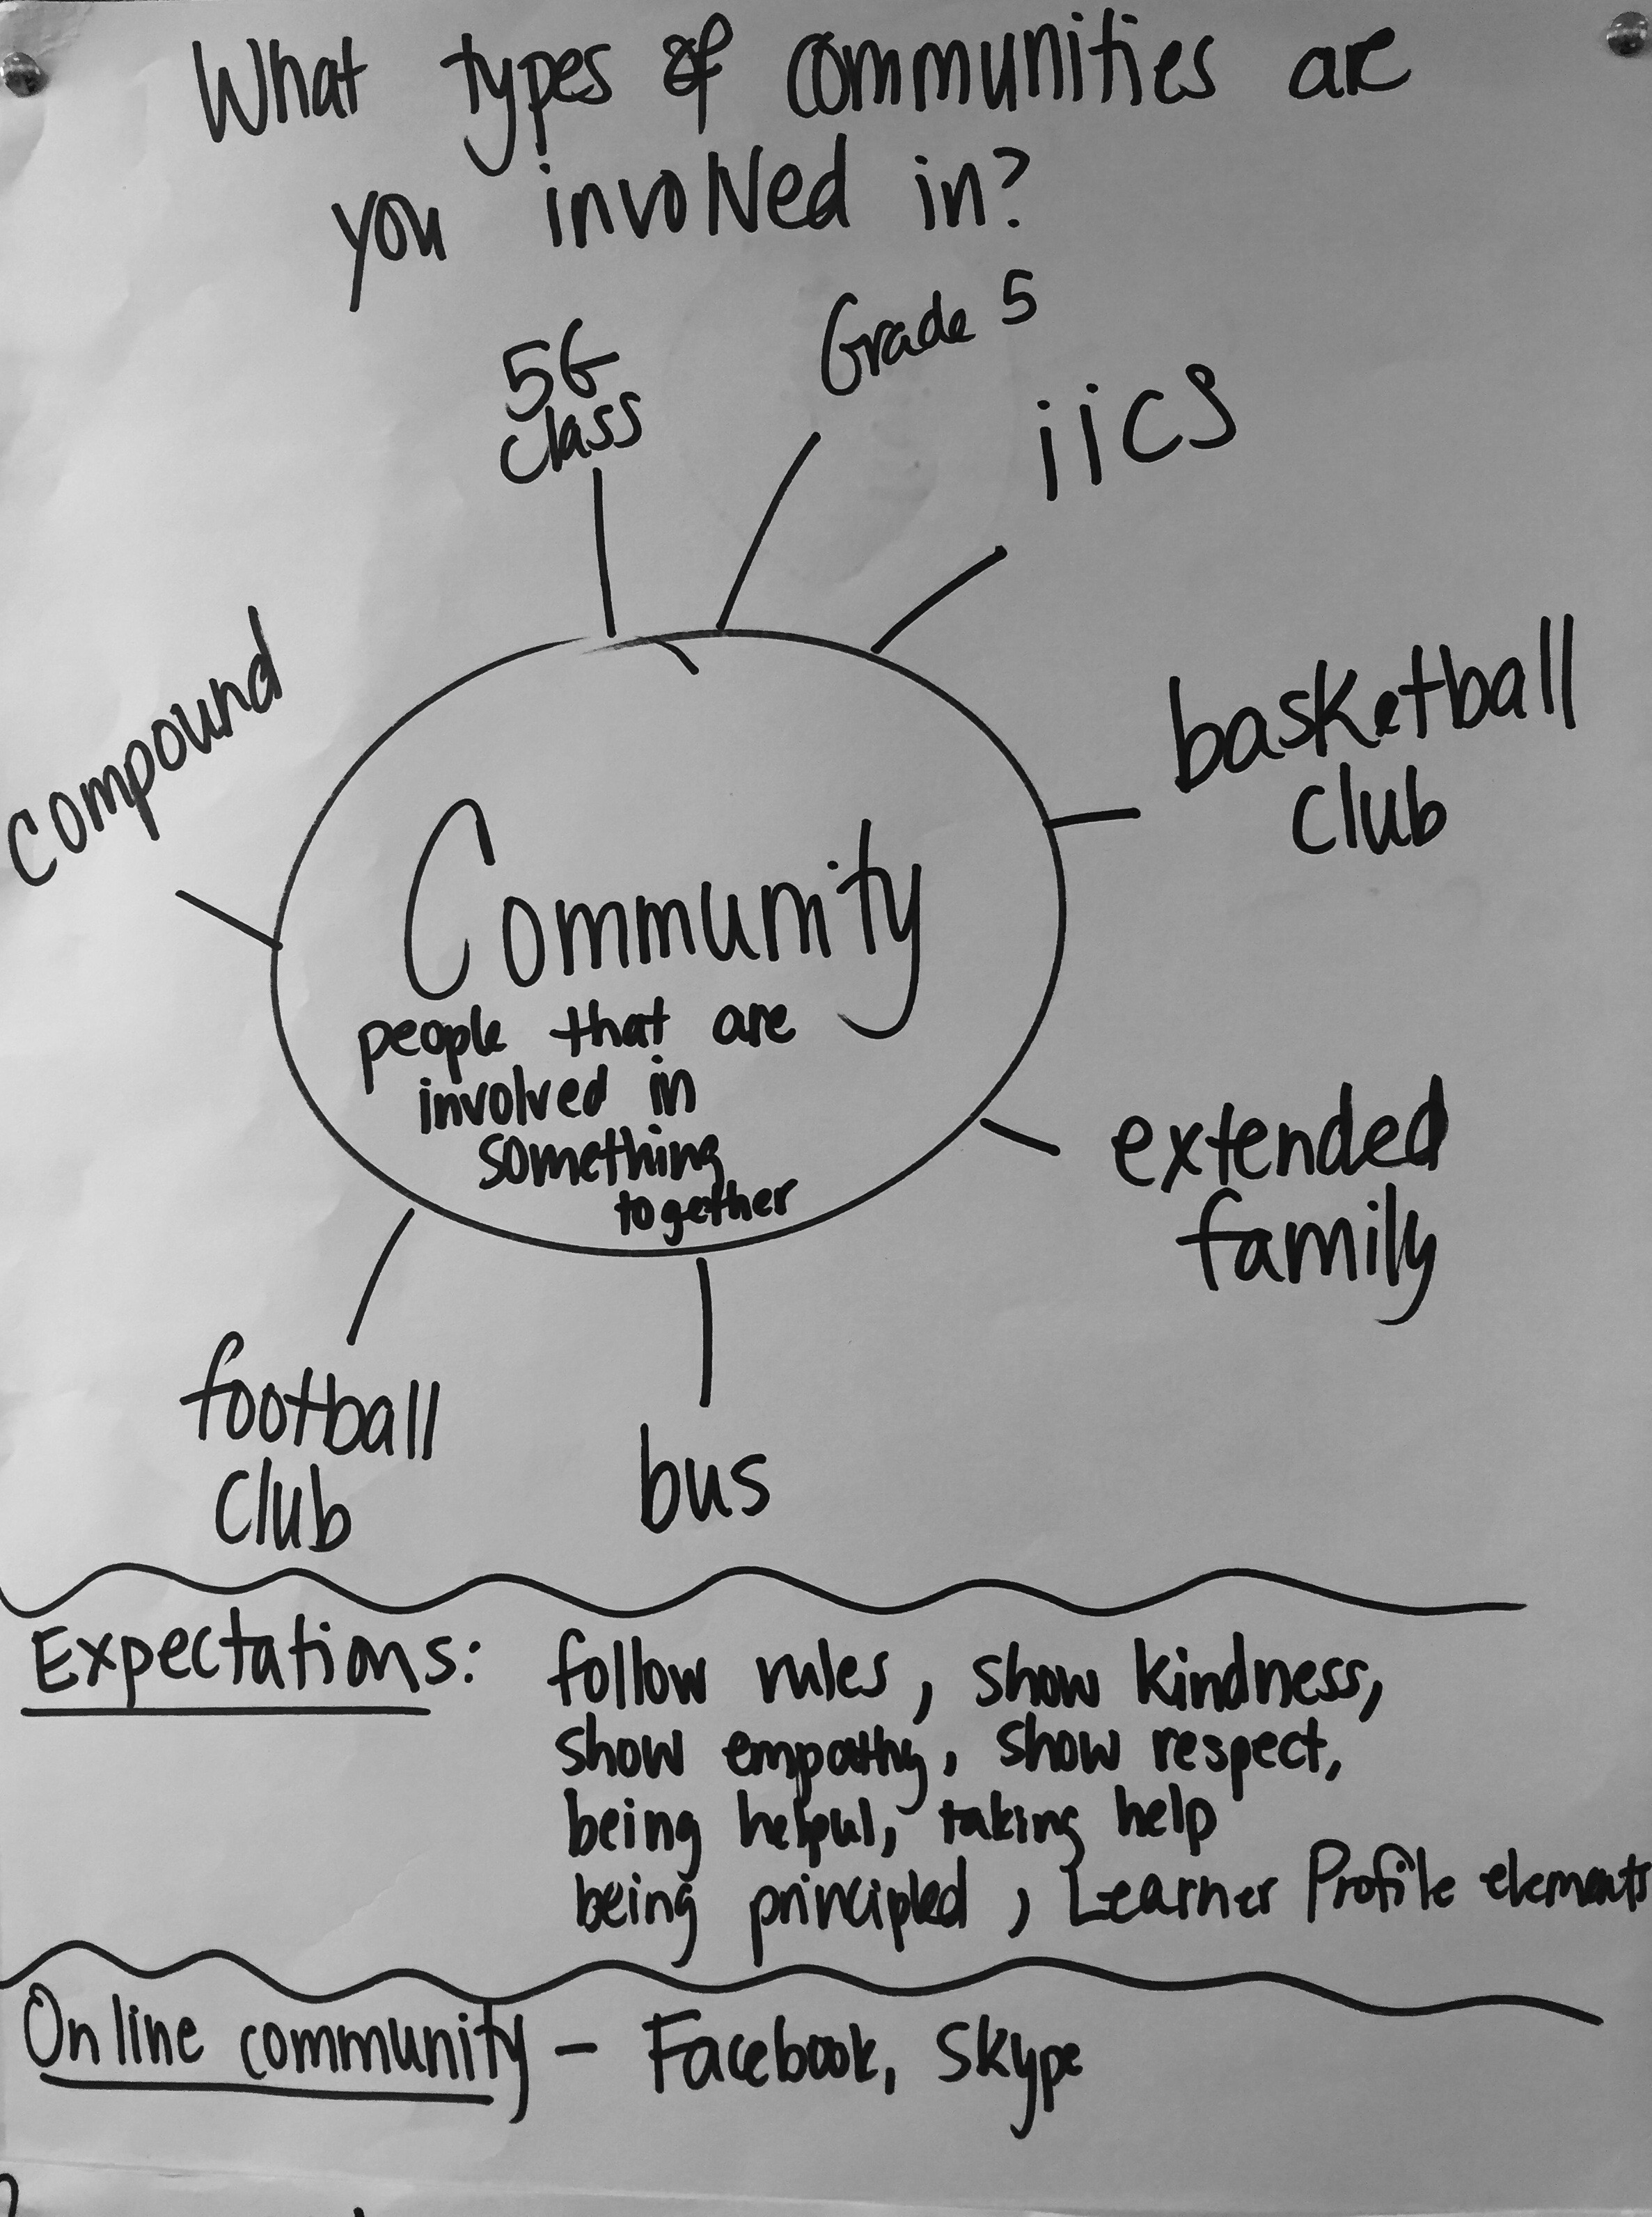 What types of communities are
you involved in?
5G
class
Grade 5
iics
basketball
club
compound
Community
people that are
involved in
something
together
extended
family
football
club
bus
Expectations: follow rules, show kindness,
show empathy, show respect,
being helpul, taking help
being principled, Learner Profile elements
Online community - Facebook, Skype